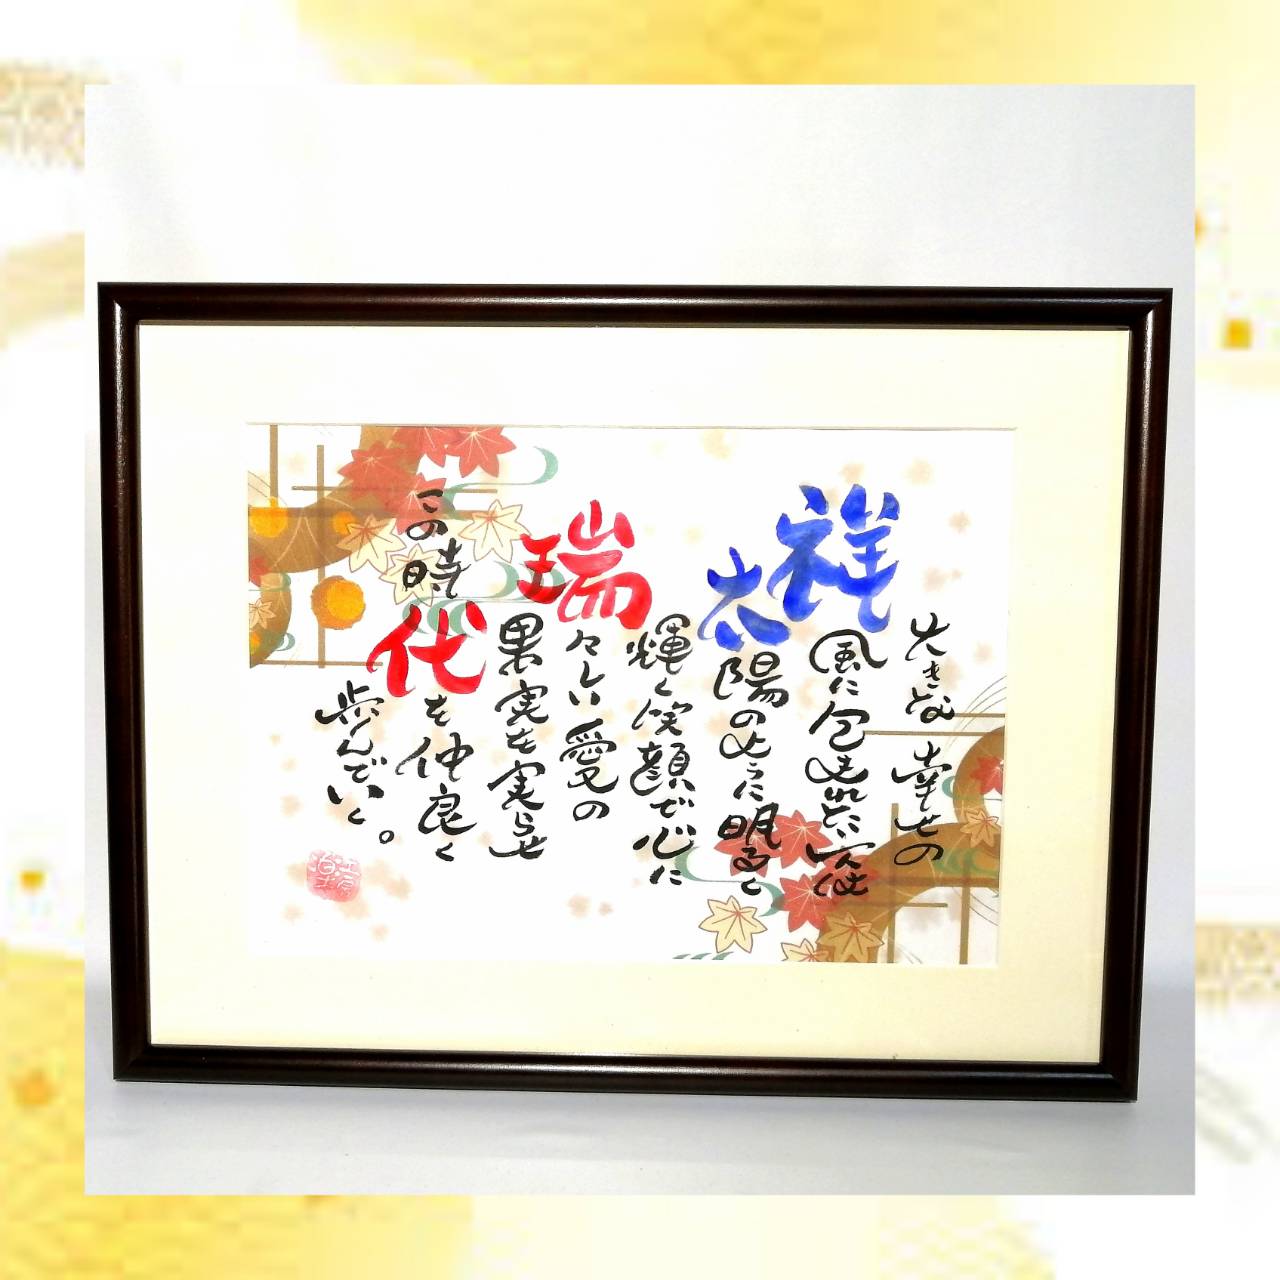 大きな幸せの
祥風に包まれ
太陽のように明るく
輝く笑顔で心に
瑞々しい愛の
果実を実らせ
この時代を仲良く
歩んでいく。